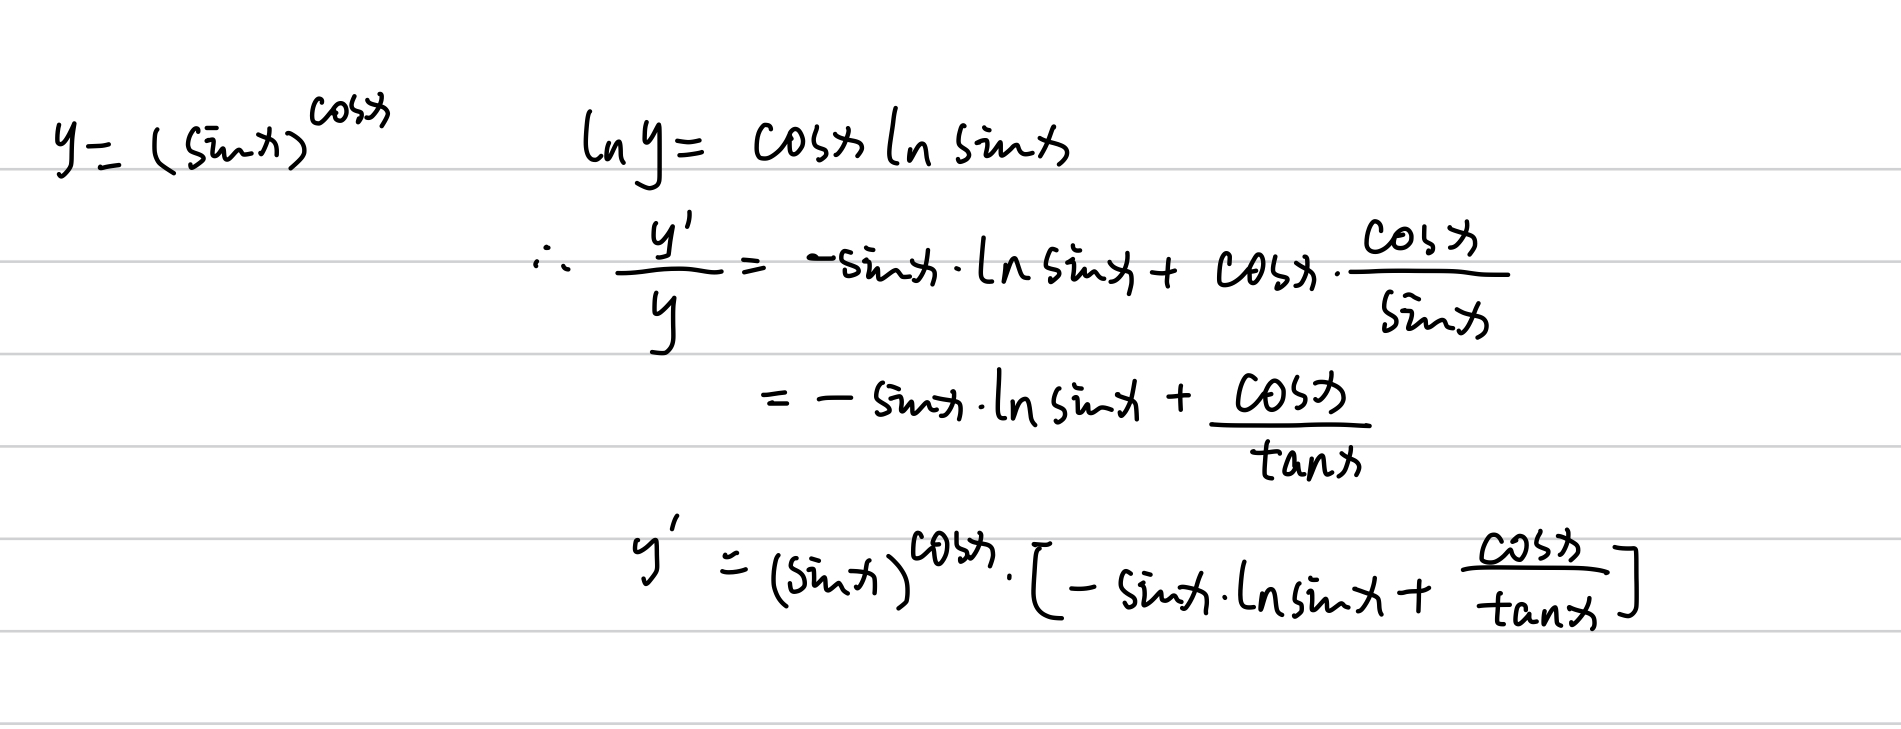 y = (sinx)^cosx    ln y = cosx ln sinx
∴ y'/y = -sinx · ln sinx + cosx · cosx/sinx
= - sinx · ln sinx + cosx/tanx
y' = (sinx)^cosx · [- sinx · ln sinx + cosx/tanx]